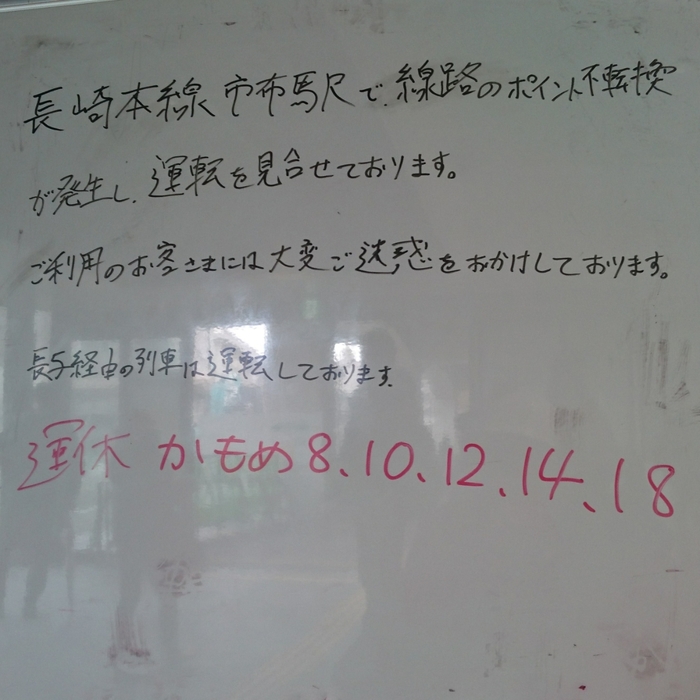 長崎本線 市布駅で、線路のポイント不転換
が発生し、運転を見合せております。
ご利用のお客さまには大変ご迷惑をおかけしております。
長与経由の列車は運転しております。
運休 かもめ8、10、12、14、18